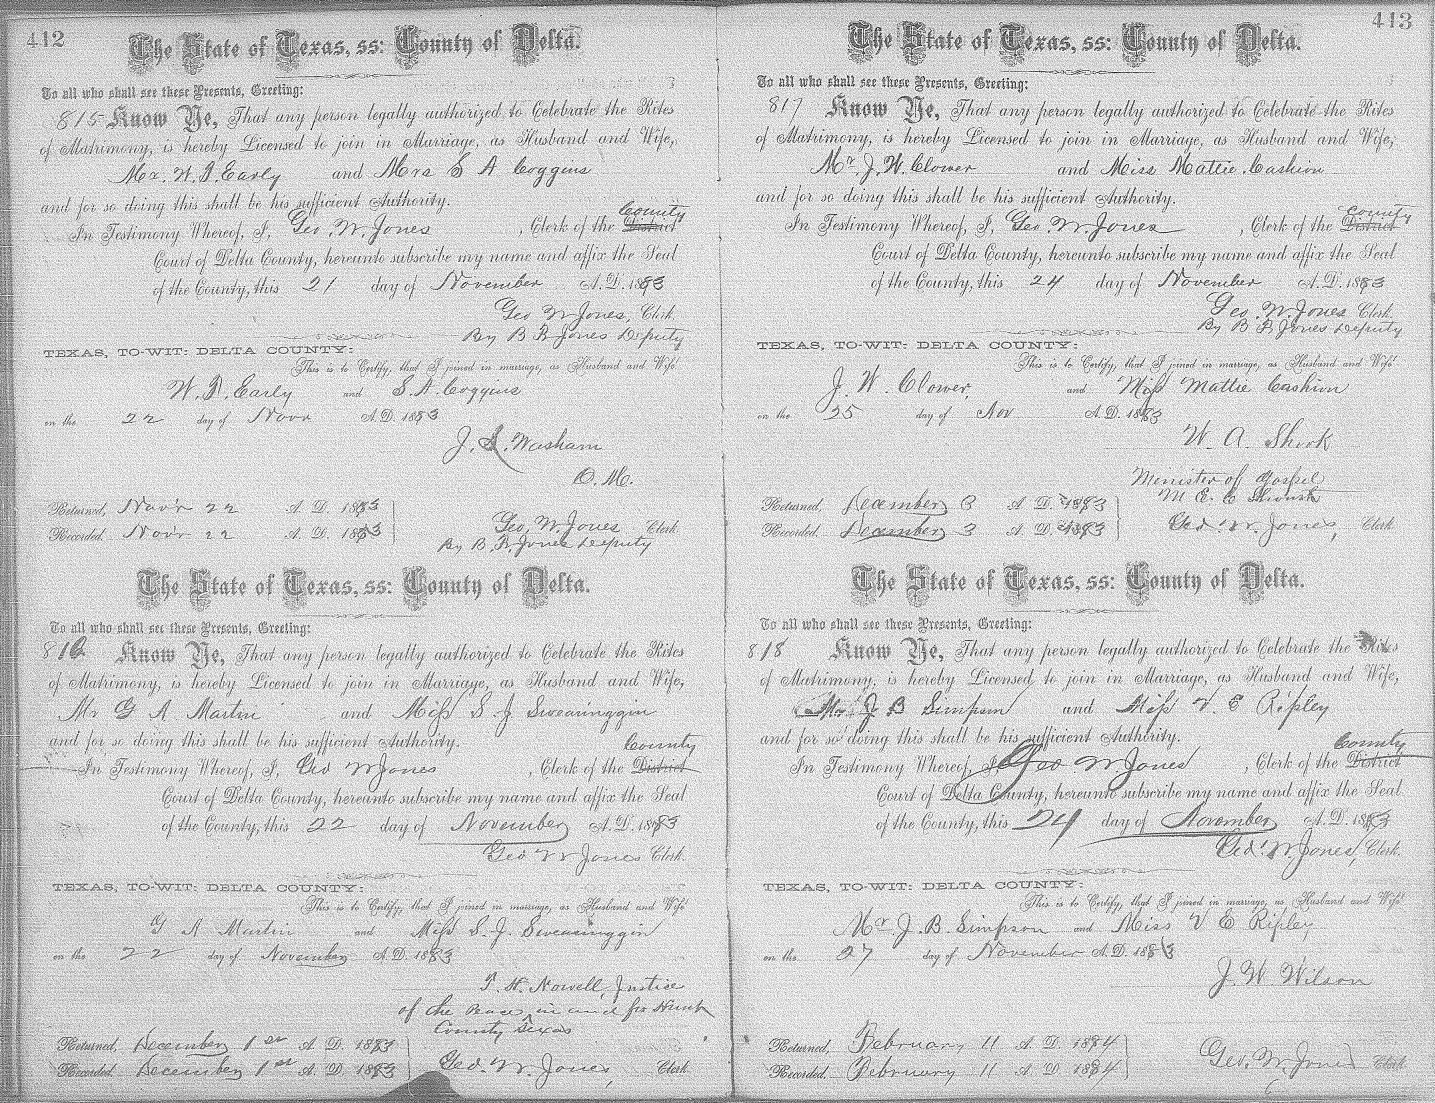 412
The State of Texas, ss: County of Delta.
To all who shall see these Presents, Greeting:
815 Know Ye, That any person legally authorized to Celebrate the Rites
of Matrimony, is hereby Licensed to join in Marriage, as Husband and Wife,
Mr. W. T. Early and Mrs S A Coggins
and for so doing this shall be his sufficient Authority.
County
In Testimony Whereof, I, Geo. W. Jones, Clerk of the District
Court of Delta County, hereunto subscribe my name and affix the Seal
of the County, this 21 day of November A. D. 1883
Geo W Jones, Clerk.
By B R Jones Deputy
TEXAS, TO-WIT: DELTA COUNTY:
This is to Certify, that I joined in marriage, as Husband and Wife
W. T. Early and S. A. Coggins
on the 22 day of Novr A. D. 1883
J. S. Washam
O. M.
Returned, Nov'r 22 A. D. 1883
Recorded. Nov'r 22 A. D. 1883
Geo. W. Jones Clerk
By B. R. Jones Deputy
The State of Texas, ss: County of Delta.
To all who shall see these Presents, Greeting:
816 Know Ye, That any person legally authorized to Celebrate the Rites
of Matrimony, is hereby Licensed to join in Marriage, as Husband and Wife,
Mr G A Martin and Miss S. J Swearinggin
and for so doing this shall be his sufficient Authority.
County
In Testimony Whereof, I, Geo W Jones, Clerk of the District
Court of Delta County, hereunto subscribe my name and affix the Seal
of the County, this 22 day of November A. D. 1883
Geo W Jones Clerk.
TEXAS, TO-WIT: DELTA COUNTY:
This is to Certify, that I joined in marriage, as Husband and Wife
G A Martin and Miss S. J. Swearinggin
on the 22 day of November A. D. 1883
T. H. Nowell, Justice
of the Peace, in and for Hunt
County Texas
Returned, December 1st A. D. 1883
Recorded. December 1st A. D. 1883
Geo. W. Jones, Clerk.
413
The State of Texas, ss: County of Delta.
To all who shall see these Presents, Greeting:
817 Know Ye, That any person legally authorized to Celebrate the Rites
of Matrimony, is hereby Licensed to join in Marriage, as Husband and Wife,
Mr. J. W. Clower and Miss Mattie Cashion
and for so doing this shall be his sufficient Authority.
County
In Testimony Whereof, I, Geo. W. Jones, Clerk of the District
Court of Delta County, hereunto subscribe my name and affix the Seal
of the County, this 24 day of November A. D. 1883
Geo. W. Jones Clerk.
By B R Jones Deputy
TEXAS, TO-WIT: DELTA COUNTY:
This is to Certify, that I joined in marriage, as Husband and Wife
J. W Clower, and Miss Mattie Cashion
on the 25 day of Nov A. D. 1883
W. A. Shook
Minister of Gospel
M. E. C
Returned, December 3 A. D. 1883
Recorded. December 3 A. D. 1883
Geo W. Jones, Clerk
The State of Texas, ss: County of Delta.
To all who shall see these Presents, Greeting:
818 Know Ye, That any person legally authorized to Celebrate the Rites
of Matrimony, is hereby Licensed to join in Marriage, as Husband and Wife,
Mr J B Simpson and Miss V. E Ripley
and for so doing this shall be his sufficient Authority.
County
In Testimony Whereof, I, Geo. W Jones, Clerk of the District
Court of Delta County, hereunto subscribe my name and affix the Seal
of the County, this 24 day of November A. D. 1883
Geo. W Jones, Clerk.
TEXAS, TO-WIT: DELTA COUNTY:
This is to Certify, that I joined in marriage, as Husband and Wife
Mr. J. B. Simpson and Miss V E Ripley
on the 27 day of November A. D. 1883
J. W Wilson
Returned, February 11 A. D. 1884
Recorded. February 11 A. D. 1884
Geo. W. Jones Clerk